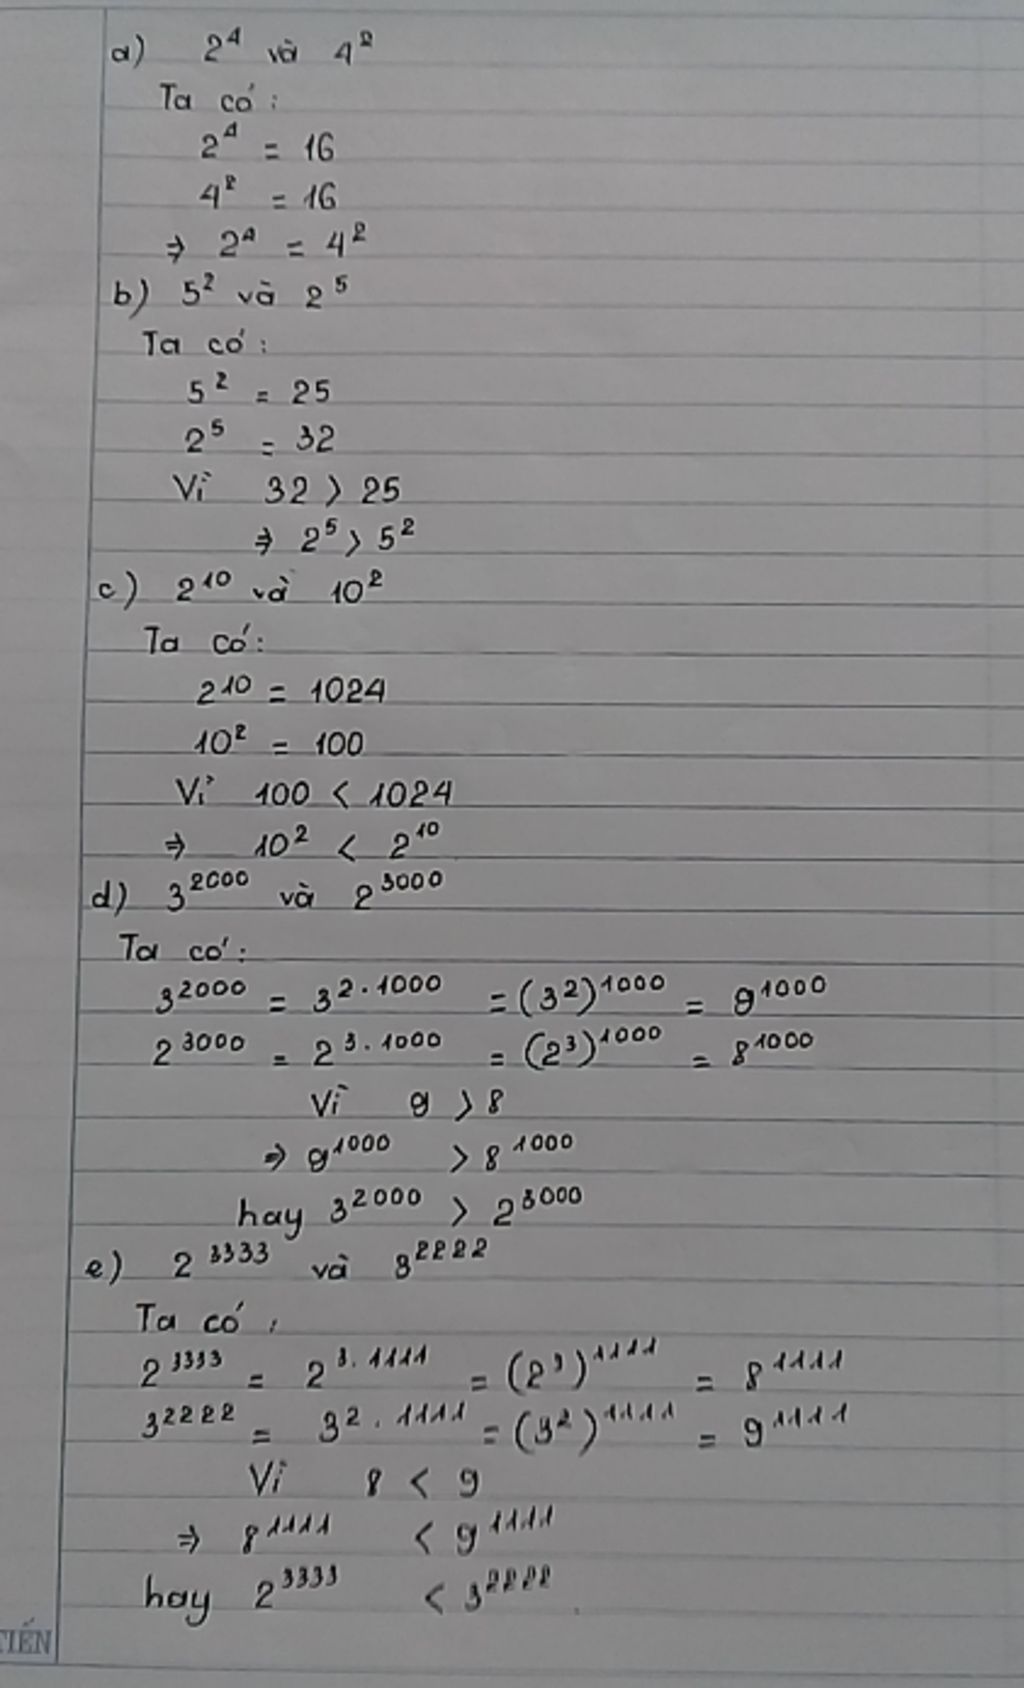 a) 2⁴ và 4²
Ta có:
2⁴ = 16
4² = 16
⇒ 2⁴ = 4²
b) 5² và 2⁵
Ta có:
5² = 25
2⁵ = 32
Vì 32 > 25
⇒ 2⁵ > 5²
c) 2¹⁰ và 10²
Ta có:
2¹⁰ = 1024
10² = 100
Vì 100 < 1024
⇒ 10² < 2¹⁰
d) 3²⁰⁰⁰ và 2³⁰⁰⁰
Ta có:
3²⁰⁰⁰ = 3²·¹⁰⁰⁰ = (3²)¹⁰⁰⁰ = 9¹⁰⁰⁰
2³⁰⁰⁰ = 2³·¹⁰⁰⁰ = (2³)¹⁰⁰⁰ = 8¹⁰⁰⁰
Vì 9 > 8
⇒ 9¹⁰⁰⁰ > 8¹⁰⁰⁰
hay 3²⁰⁰⁰ > 2³⁰⁰⁰
e) 2³³³³ và 3²²²²
Ta có:
2³³³³ = 2³·¹¹¹¹ = (2³)¹¹¹¹ = 8¹¹¹¹
3²²²² = 3²·¹¹¹¹ = (3²)¹¹¹¹ = 9¹¹¹¹
Vì 8 < 9
⇒ 8¹¹¹¹ < 9¹¹¹¹
hay 2³³³³ < 3²²²².
TIẾN